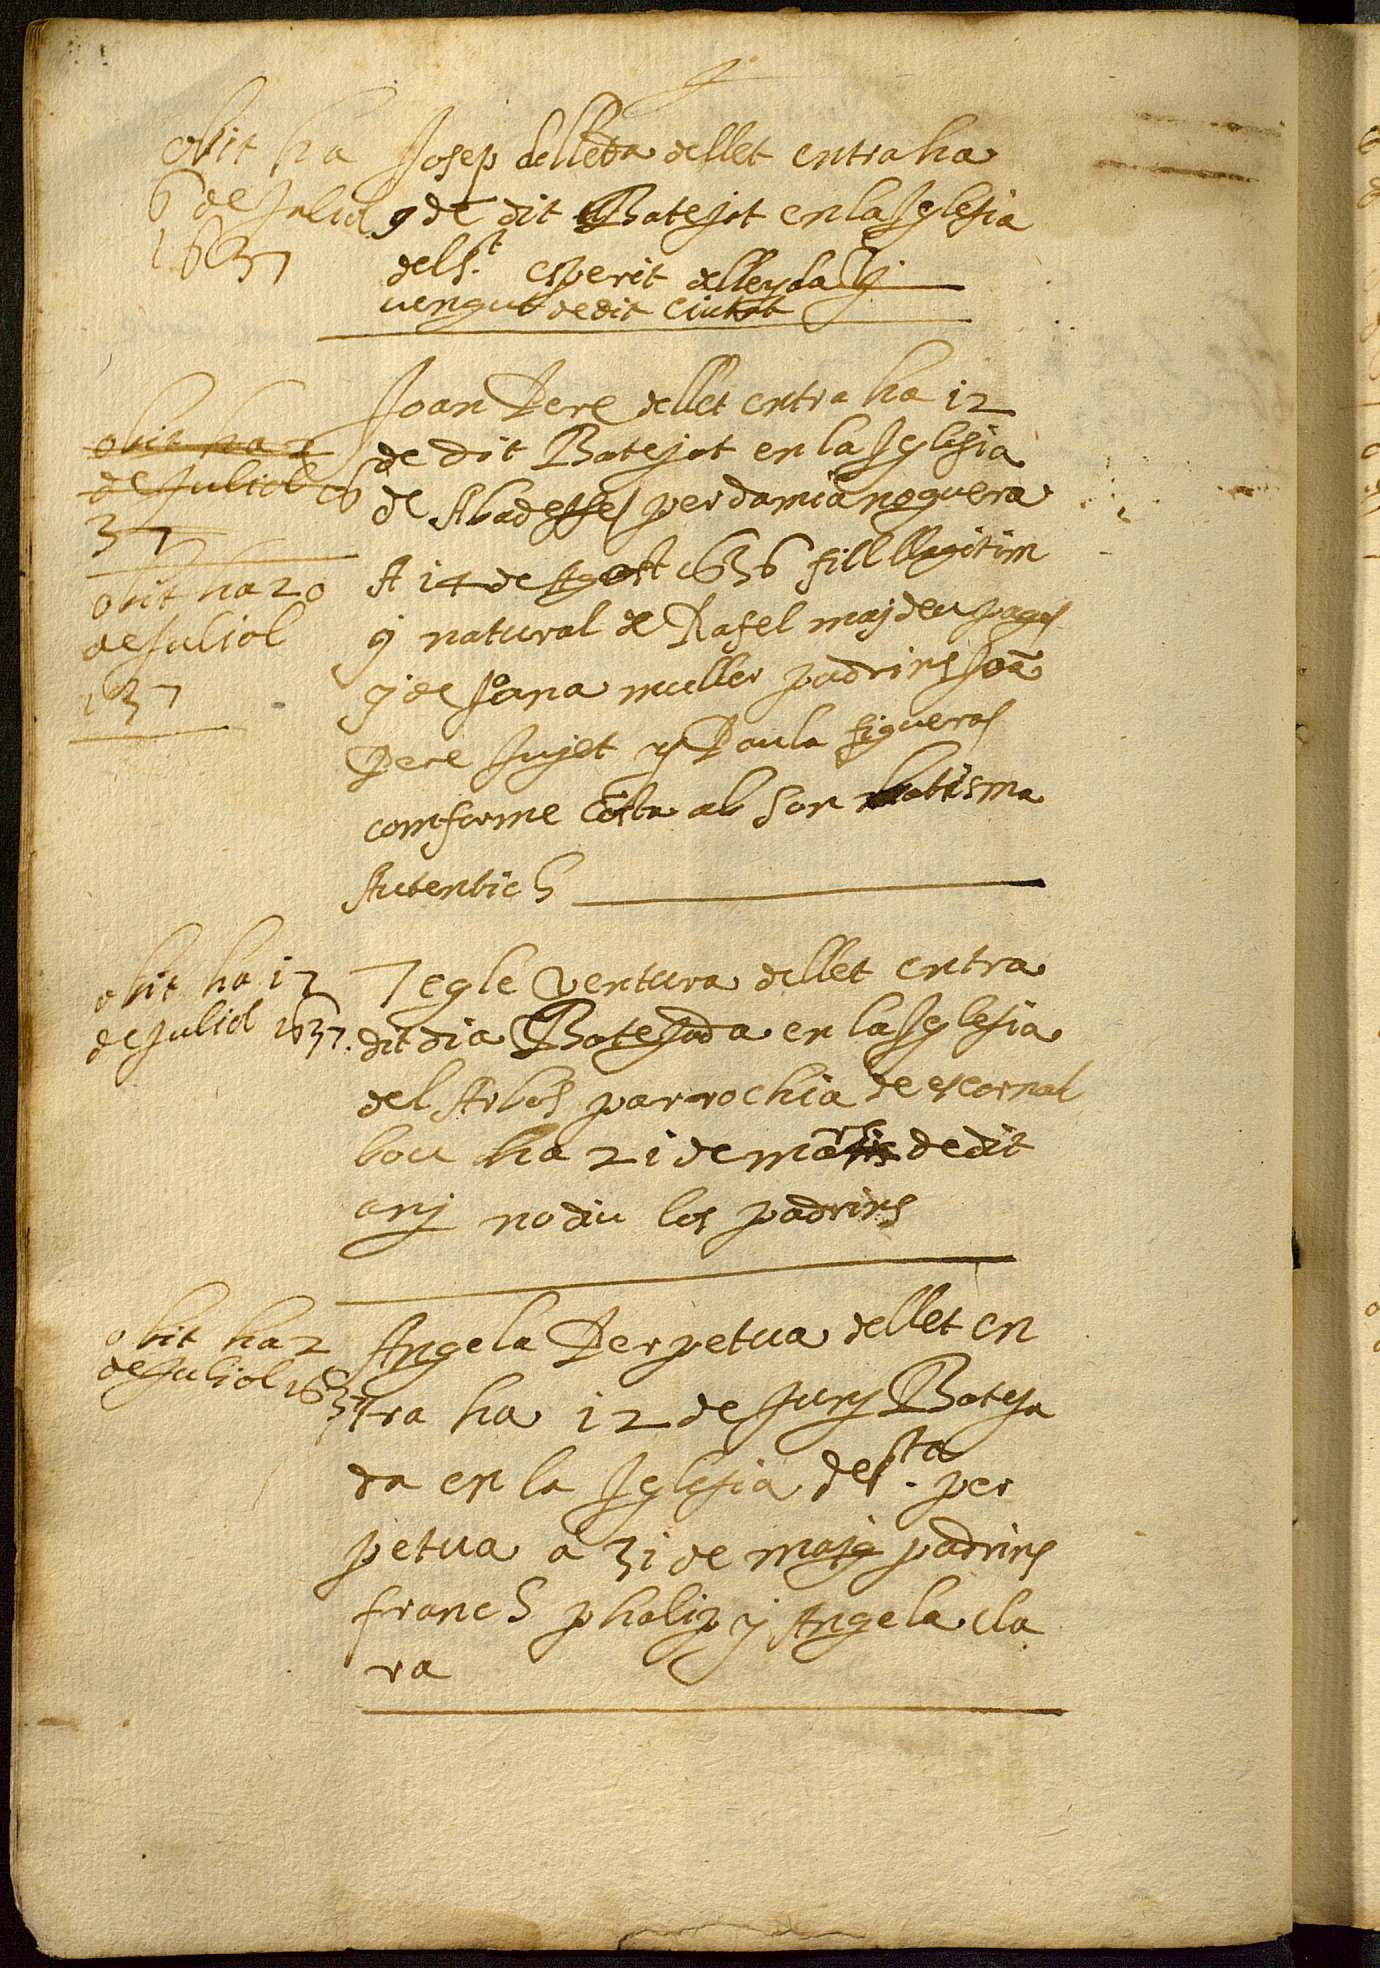 obit ha
6 de Juliol
1637
Josep de Lleda de llet entra ha
9 de dit Batejat en la Iglesia
del St. esperit de lleyda y
vengut de dit Ciutat
obit ha 2
de Juliol 16
37
obit ha 20
de Juliol
1637
Joan Pere de llet entra ha 12
de dit Batejat en la Iglesia
de Abadesses per damia noguera
A 14 de Agost 1636 fill llegitim
y natural de Rafel masdeu pages
y de Joana muller padrins Joã
Pere Sujet y Paula figueras
comforme Cõsta ab son batisma
Autentich
obit ha 12
de Juliol 1637.
Tegle Ventura de llet entra
dit dia Batejada en la Iglesia
del Arbos parrochia de escornal
bou ha 21 de mars de dit
any no diu los padrins
obit ha 2
de Juliol 163
7
Angela Perpetua de llet en
tra ha 12 de Juny Bateja
da en la Iglesia de Sta. per
petua a 31 de maig padrins
franch phalip y Angela cla
ra